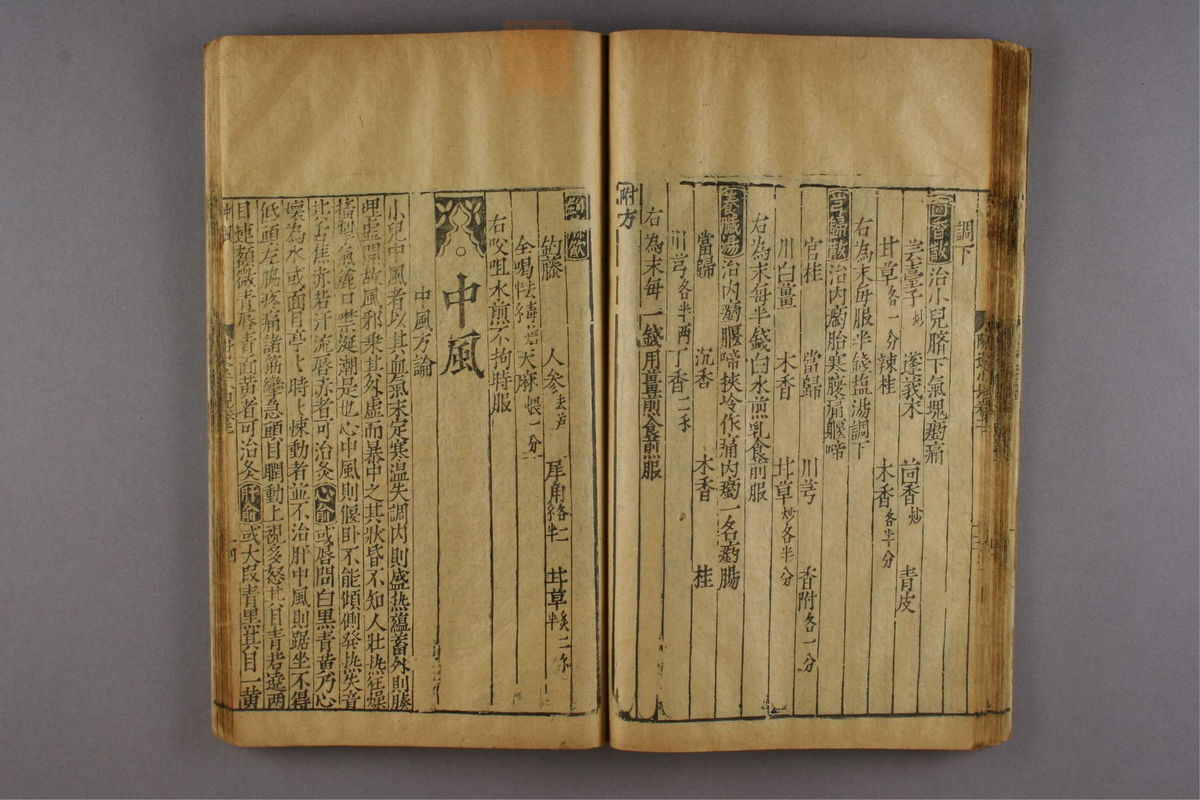 調下
茴香散治小兒臍下氣塊瘹痛
芸薹子炒 蓬莪朮 茴香炒 青皮
甘草各一分 辣桂 木香各半分
右為末每服半錢盐湯調下
芎歸散治内瘹胎寒腹痛軀啼
官桂 當歸 川芎 香附各一分
川白薑 木香 甘草炒各半分
右為末每半錢白水煎乳食前服
養臟湯治内瘹腹啼挾冷作痛内瘹一名瘹腸
當歸 沉香 木香 桂
川芎各半兩丁香二
右為末每一錢用薑煎食前服
附方
飲
鈎藤 人參去芦 犀角 甘草
全蝎 天麻煨一分
右㕮咀水煎不拘時服
中風
中風方論
小兒中風者以其血氣未定寒温失調内則盛热蘊蓄外則腠
理虛開故風邪乗其外虛而暴中之其狀昏不知人壮热狂燥
搐掣氣麄口噤涎潮是也心中風則偃卧不能傾側發热失音
其舌 赤若汗流唇赤者可治灸心俞或唇間白黑青黄乃心
壞為水或面目亭亭時時悚動者並不治肝中風則踞坐不得
低頭左脇疼痛諸筋攣急頭目瞤動上視多怒其目青若遶兩
目連額微青唇青面黄者可治灸肝俞或大段青黑其目一黄
中風